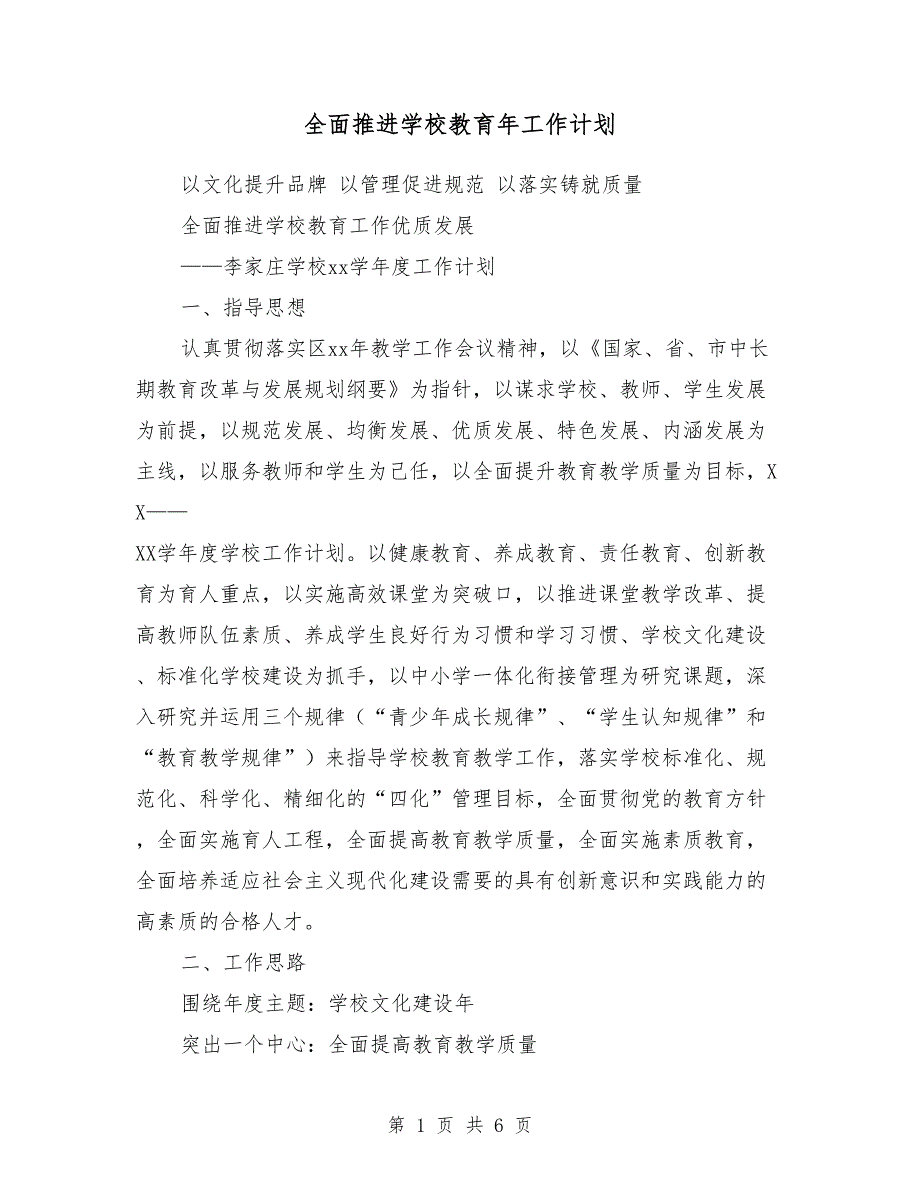 全面推进学校教育年工作计划
以文化提升品牌 以管理促进规范 以落实铸就质量
全面推进学校教育工作优质发展
——李家庄学校xx学年度工作计划
一、指导思想
认真贯彻落实区xx年教学工作会议精神，以《国家、省、市中长
期教育改革与发展规划纲要》为指针，以谋求学校、教师、学生发展
为前提，以规范发展、均衡发展、优质发展、特色发展、内涵发展为
主线，以服务教师和学生为己任，以全面提升教育教学质量为目标，X
X——
XX学年度学校工作计划。以健康教育、养成教育、责任教育、创新教
育为育人重点，以实施高效课堂为突破口，以推进课堂教学改革、提
高教师队伍素质、养成学生良好行为习惯和学习习惯、学校文化建设
、标准化学校建设为抓手，以中小学一体化衔接管理为研究课题，深
入研究并运用三个规律（“青少年成长规律”、“学生认知规律”和
“教育教学规律”）来指导学校教育教学工作，落实学校标准化、规
范化、科学化、精细化的“四化”管理目标，全面贯彻党的教育方针
，全面实施育人工程，全面提高教育教学质量，全面实施素质教育，
全面培养适应社会主义现代化建设需要的具有创新意识和实践能力的
高素质的合格人才。
二、工作思路
围绕年度主题：学校文化建设年
突出一个中心：全面提高教育教学质量
第 1 页 共 6 页